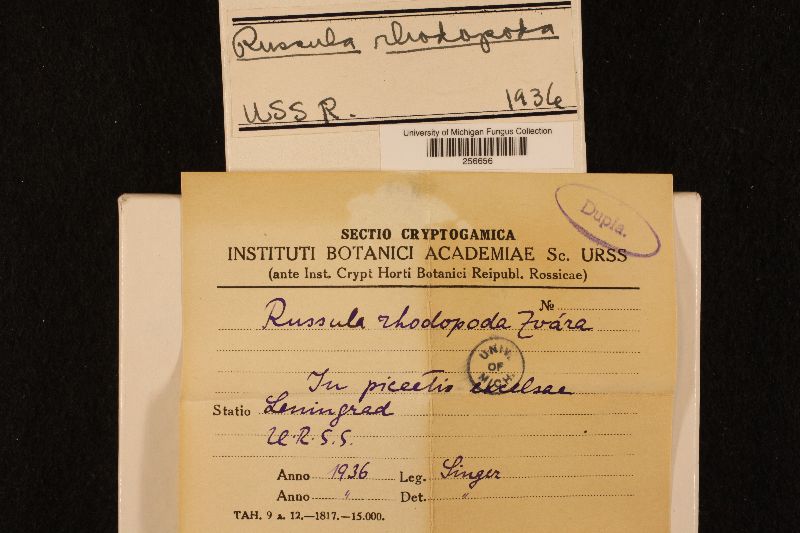 Russula rhodopoda
USSR. 1936
University of Michigan Fungus Collection
256656
Dupla.
SECTIO CRYPTOGAMICA
INSTITUTI BOTANICI ACADEMIAE Sc. URSS
(ante Inst. Crypt Horti Botanici Reipubl. Rossicae)
№
Russula rhodopoda Zvára
UNIV. OF MICH.
In piceetis excelsae
Statio Leningrad
U.R.S.S.
Anno 1936 Leg. Singer
Anno " Det. "
TAH. 9 a. 12.—1817.—15.000.